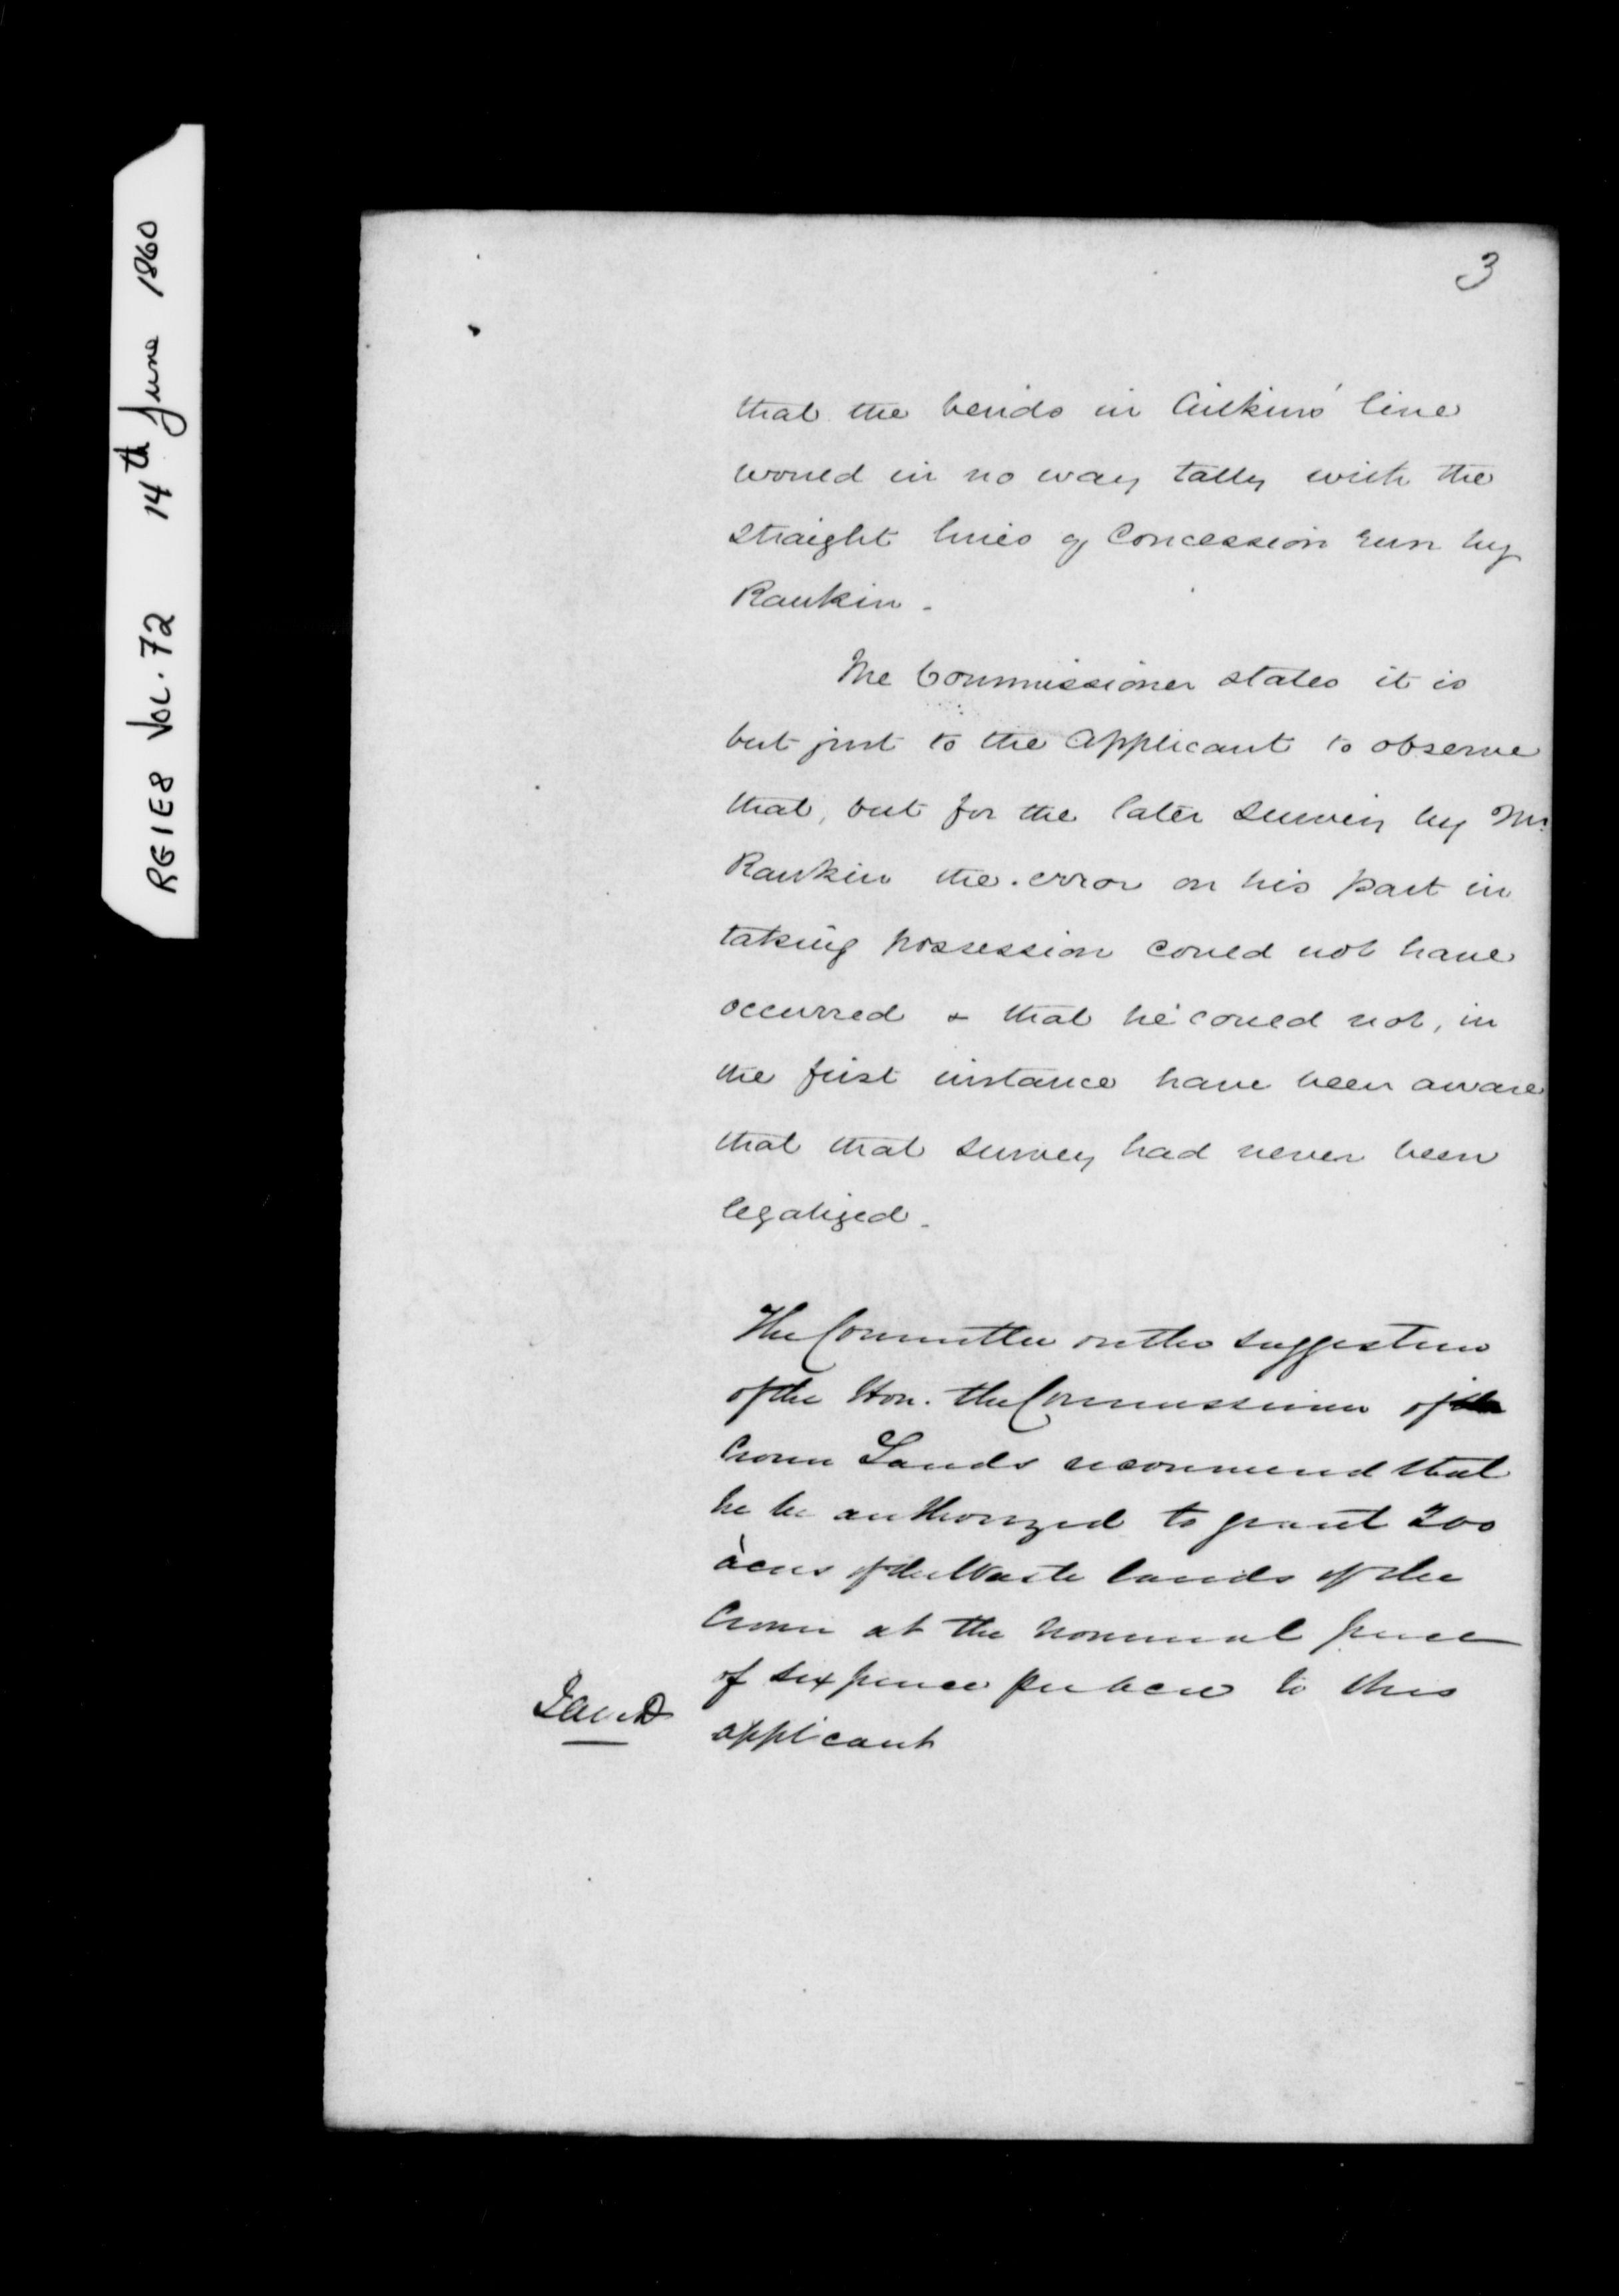 RG1E8 VOL. 72 14th June 1860
3
that the bends in Aitkins' line
would in no way tally with the
straight lines of Concession run by
Rankin.
The Commissioner states it is
but just to the Applicant to observe
that, but for the later survey by Mr
Rankin the error on his part in
taking possession could not have
occurred & that he could not, in
the first instance have been aware
that that survey had never been
legalized.
The Committee on the suggestion
of the Hon. the Commissioner of
Crown Lands recommend that
he be authorized to grant 200
acres of the Waste lands of the
Crown at the nominal price
of six pence per acre to this
applicant